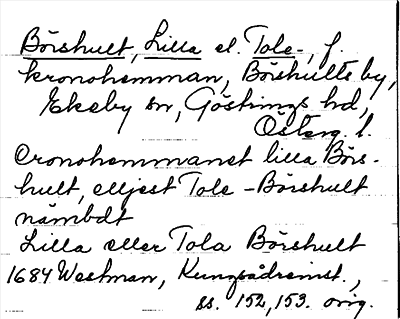 Börshult, Lilla el. Tole-, f.
kronohemman, Börshults by,
Ekeby sn, Göstrings hd,
Österg. l.
Cronohemmanet lilla Börs-
hult, elljest Tole-Börshult
nämbdt
Lilla eller Tola Börshult
1684 Westman, Kungsådreinst.,
ss. 152, 153. orig.